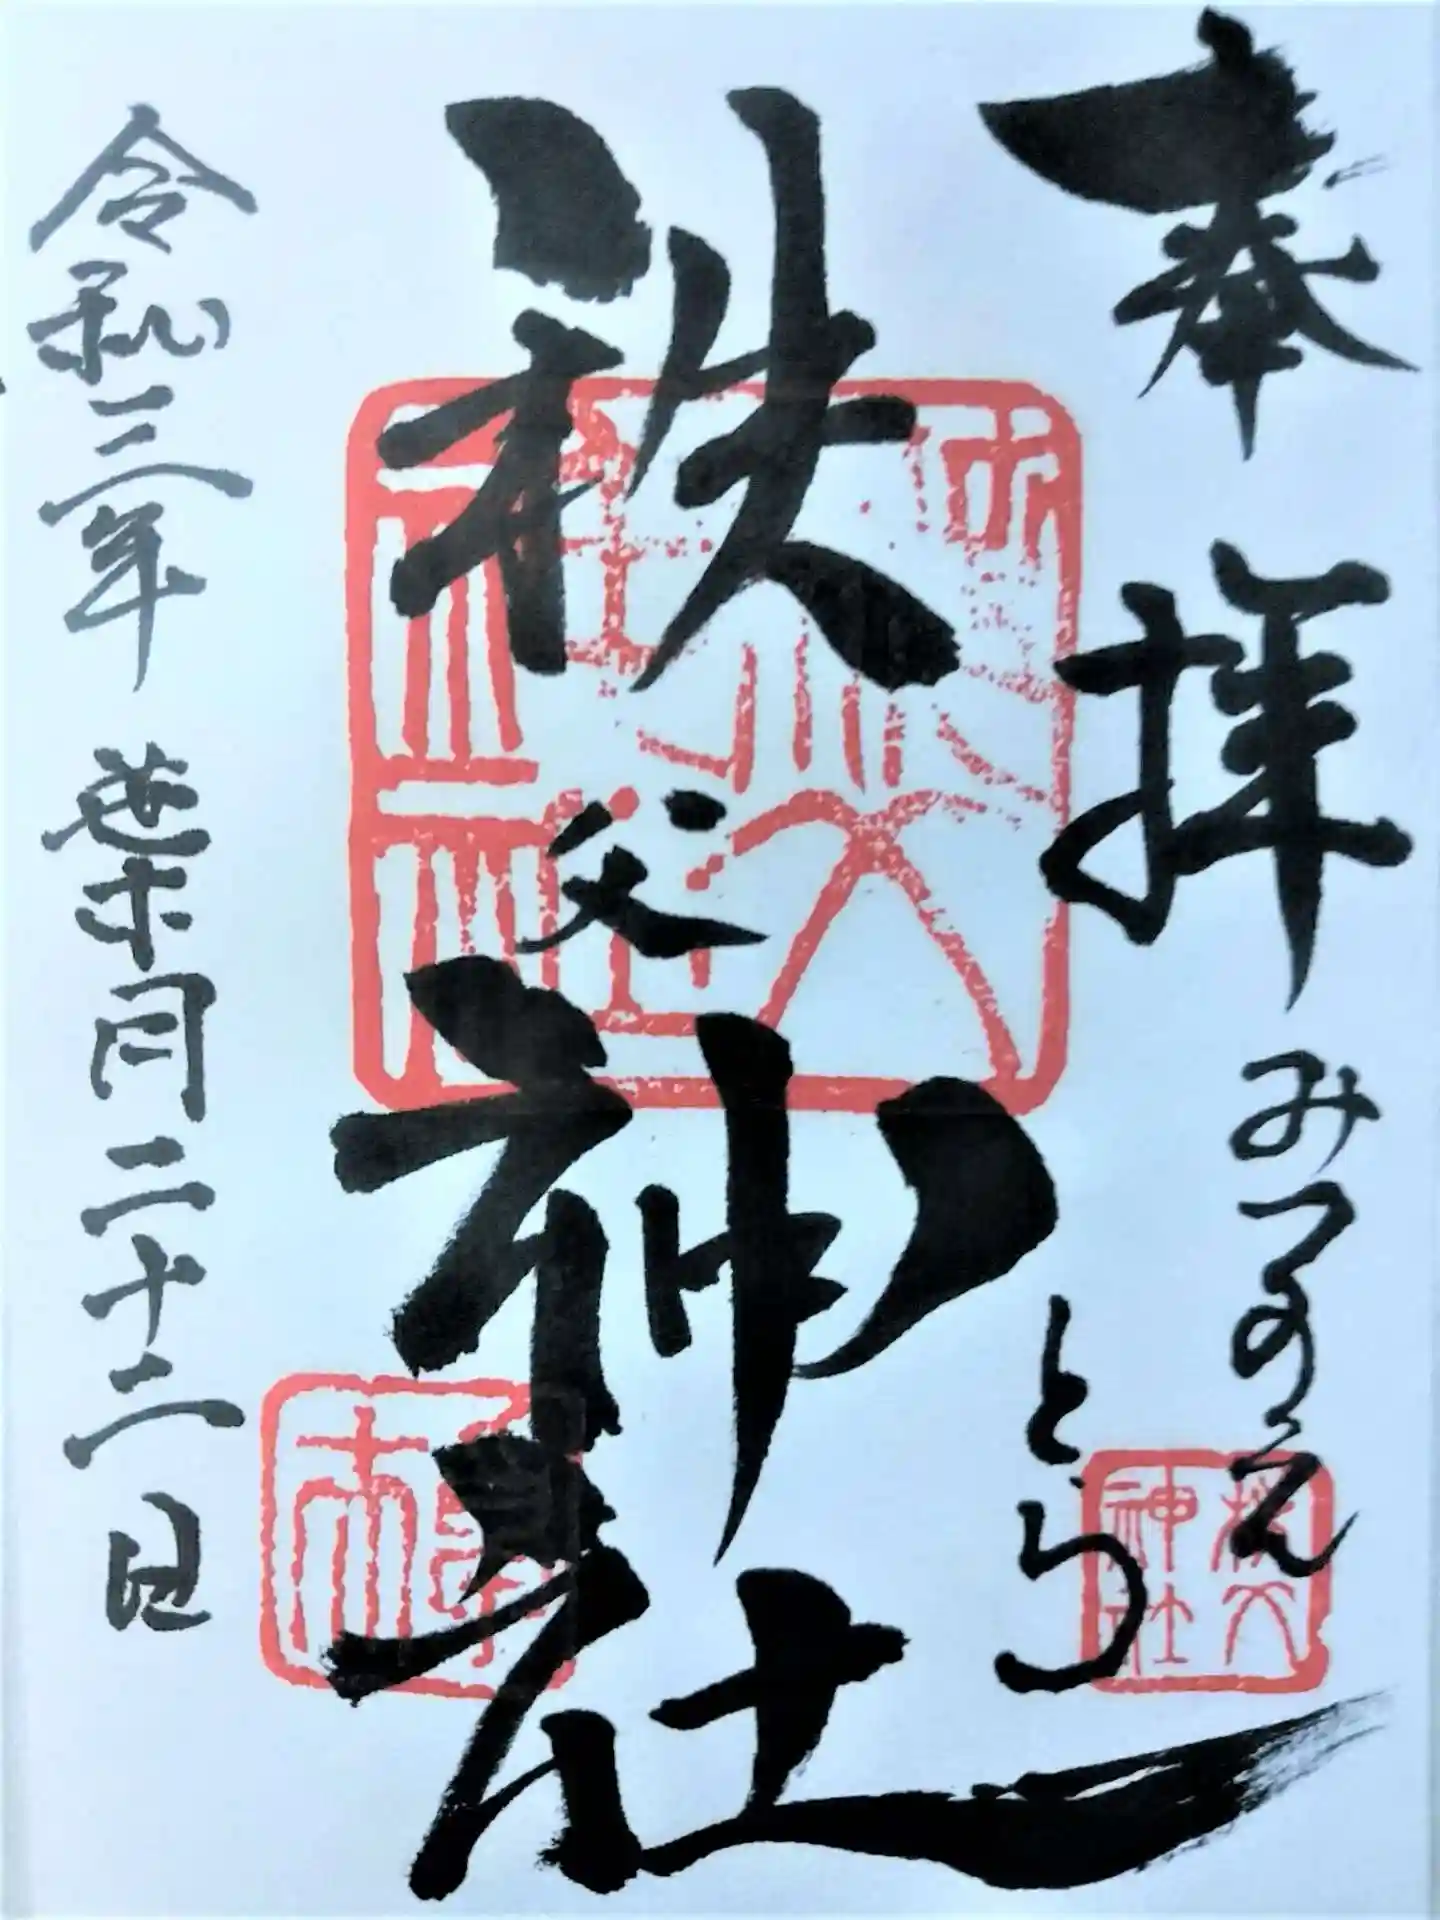 奉拝
みづのえ
とら
秩父神社
令和三年 葉月二十二日
秩父神社